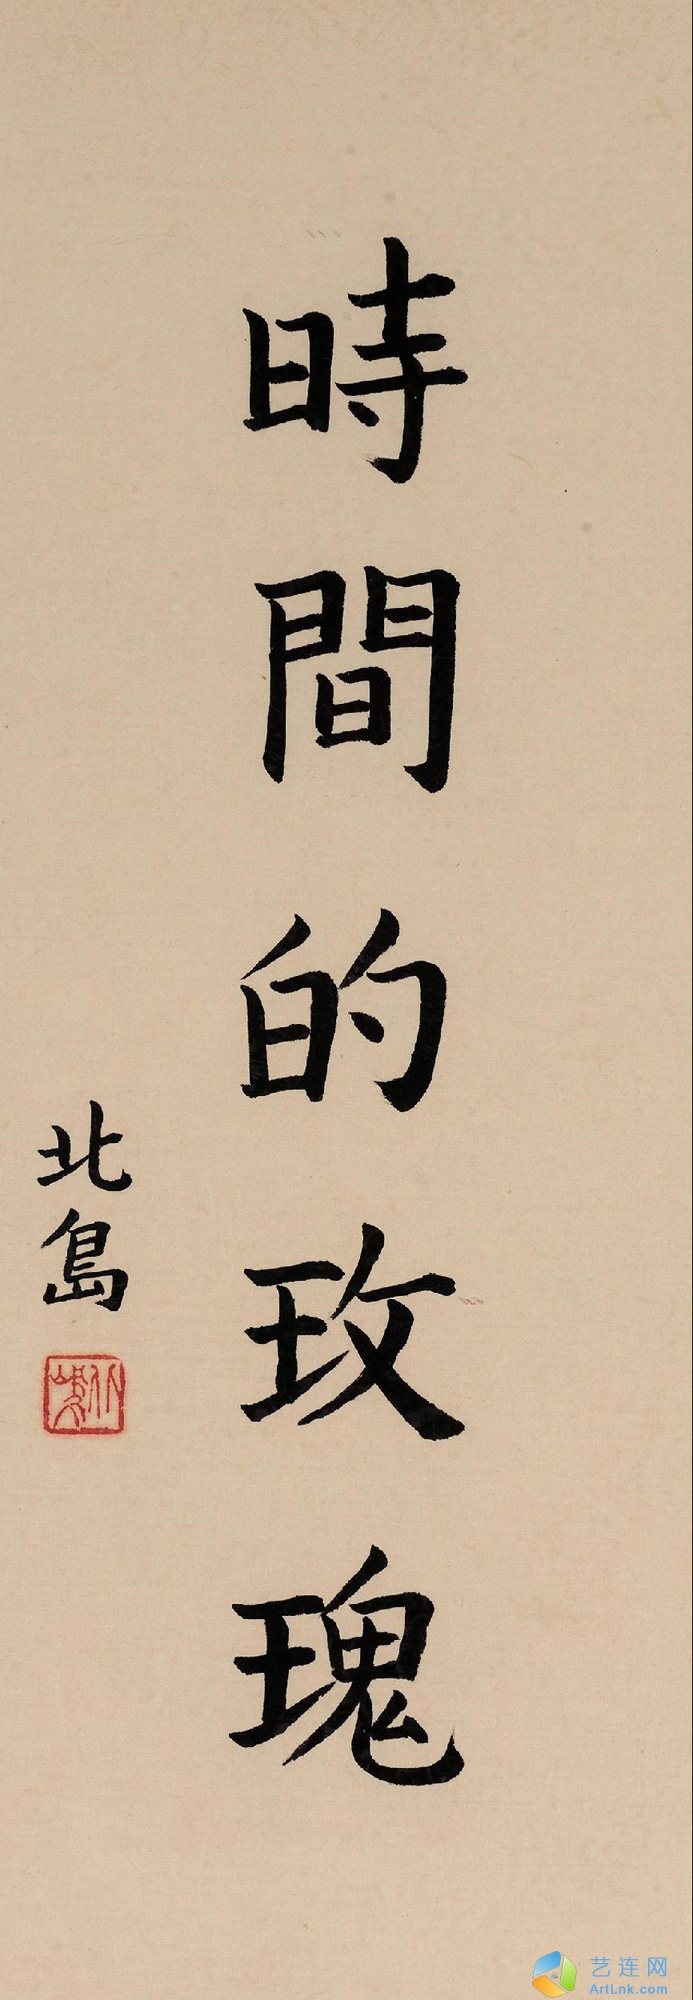 時間的玫瑰
北島
北島
艺连网
ArtLnk.com